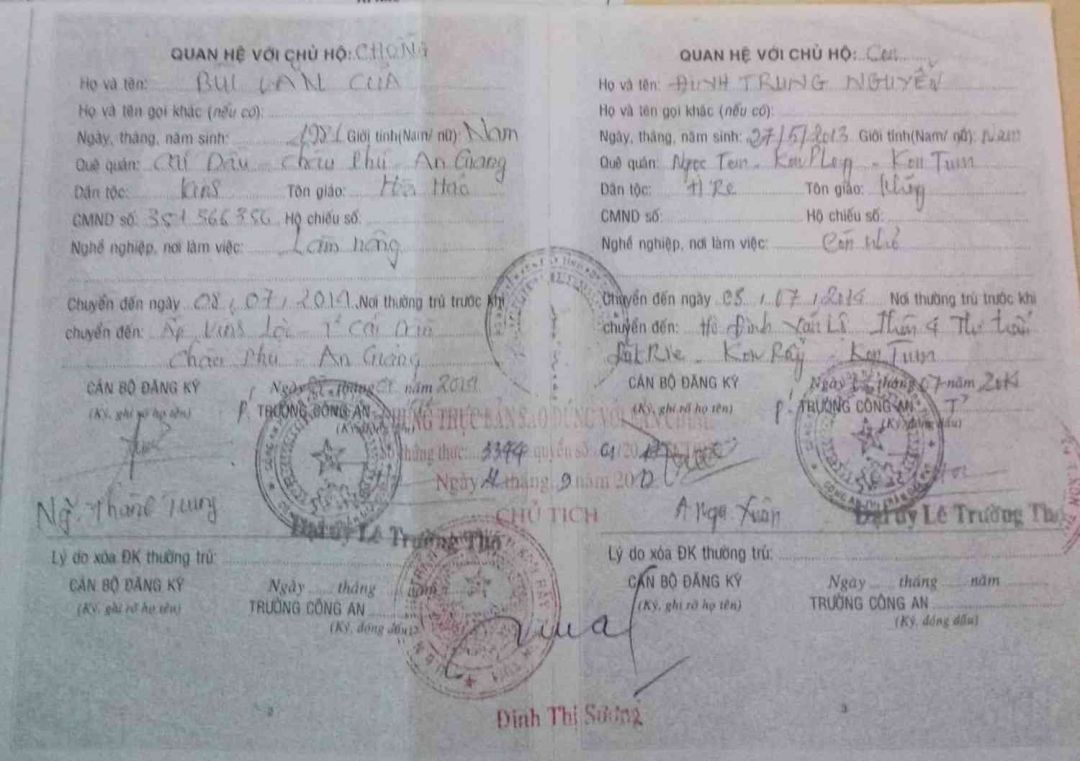 QUAN HỆ VỚI CHỦ HỘ: CHỒNG
Họ và tên: BÙI VĂN CỦA
Họ và tên gọi khác (nếu có):
Ngày, tháng, năm sinh: 1981 Giới tính (Nam/ nữ): Nam
Quê quán: Dầu Châu Phú - An Giang
Dân tộc: Kinh Tôn giáo: Hòa Hảo
CMND số: 351 566 356 Hộ chiếu số:
Nghề nghiệp, nơi làm việc: Làm nông
Chuyển đến ngày 08 / 07 / 2014 Nơi thường trú trước khi
chuyển đến: Ấp Vĩnh Lộc
Châu Phú - An Giang
CÁN BỘ ĐĂNG KÝ Ngày tháng năm 2014
(Ký, ghi rõ họ tên) TRƯỞNG CÔNG AN
Ng. Thành Trung
Đại úy Lê Trường Thọ
Lý do xóa ĐK thường trú:
CÁN BỘ ĐĂNG KÝ Ngày tháng năm
(Ký, ghi rõ họ tên) TRƯỞNG CÔNG AN
(Ký, đóng dấu)
2
QUAN HỆ VỚI CHỦ HỘ: Con
Họ và tên: ĐINH TRUNG NGUYÊN
Họ và tên gọi khác (nếu có):
Ngày, tháng, năm sinh: 27/5/2013 Giới tính (Nam/ nữ): Nam
Quê quán: Ngọc Tem - Kon Plong - Kon Tum
Dân tộc: H'Re Tôn giáo: Không
CMND số: Hộ chiếu số:
Nghề nghiệp, nơi làm việc: Còn nhỏ
Chuyển đến ngày 08 / 07 / 2014 Nơi thường trú trước khi
chuyển đến: Hộ Đinh Văn Lô Thôn 4
Đắk Rve - Kon Rẫy - Kon Tum
CÁN BỘ ĐĂNG KÝ Ngày tháng 07 năm 2014
(Ký, ghi rõ họ tên) TRƯỞNG CÔNG AN
(Ký, đóng dấu)
A Nga Xuân
Đại úy Lê Trường Thọ
Lý do xóa ĐK thường trú:
CÁN BỘ ĐĂNG KÝ Ngày tháng năm
(Ký, ghi rõ họ tên) TRƯỞNG CÔNG AN
(Ký, đóng dấu)
3
CHỨNG THỰC BẢN SAO ĐÚNG VỚI BẢN CHÍNH
Số chứng thực: 3344 quyển số: 01/20
Ngày tháng 9 năm 20
CHỦ TỊCH
Đinh Thị Sương